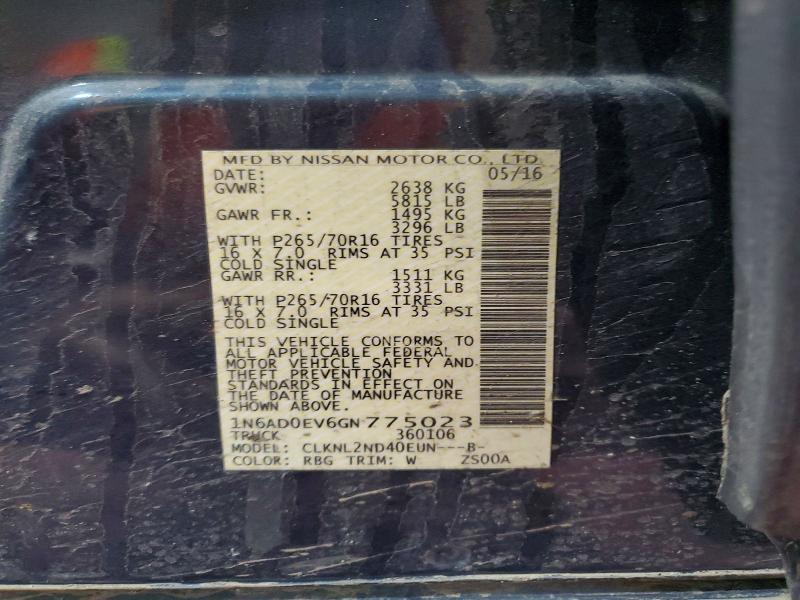 MFD BY NISSAN MOTOR CO., LTD.
DATE: 05/16
GVWR: 2638 KG
5815 LB
GAWR FR.: 1495 KG
3296 LB
WITH P265/70R16 TIRES
16 X 7.0 RIMS AT 35 PSI
COLD SINGLE
GAWR RR.: 1511 KG
3331 LB
WITH P265/70R16 TIRES
16 X 7.0 RIMS AT 35 PSI
COLD SINGLE
THIS VEHICLE CONFORMS TO
ALL APPLICABLE FEDERAL
MOTOR VEHICLE SAFETY AND
THEFT PREVENTION
STANDARDS IN EFFECT ON
THE DATE OF MANUFACTURE
SHOWN ABOVE.
1N6AD0EV6GN775023
TRUCK 360106
MODEL: CLKNL2ND40EUN---B-
COLOR: RBG TRIM: W ZS00A